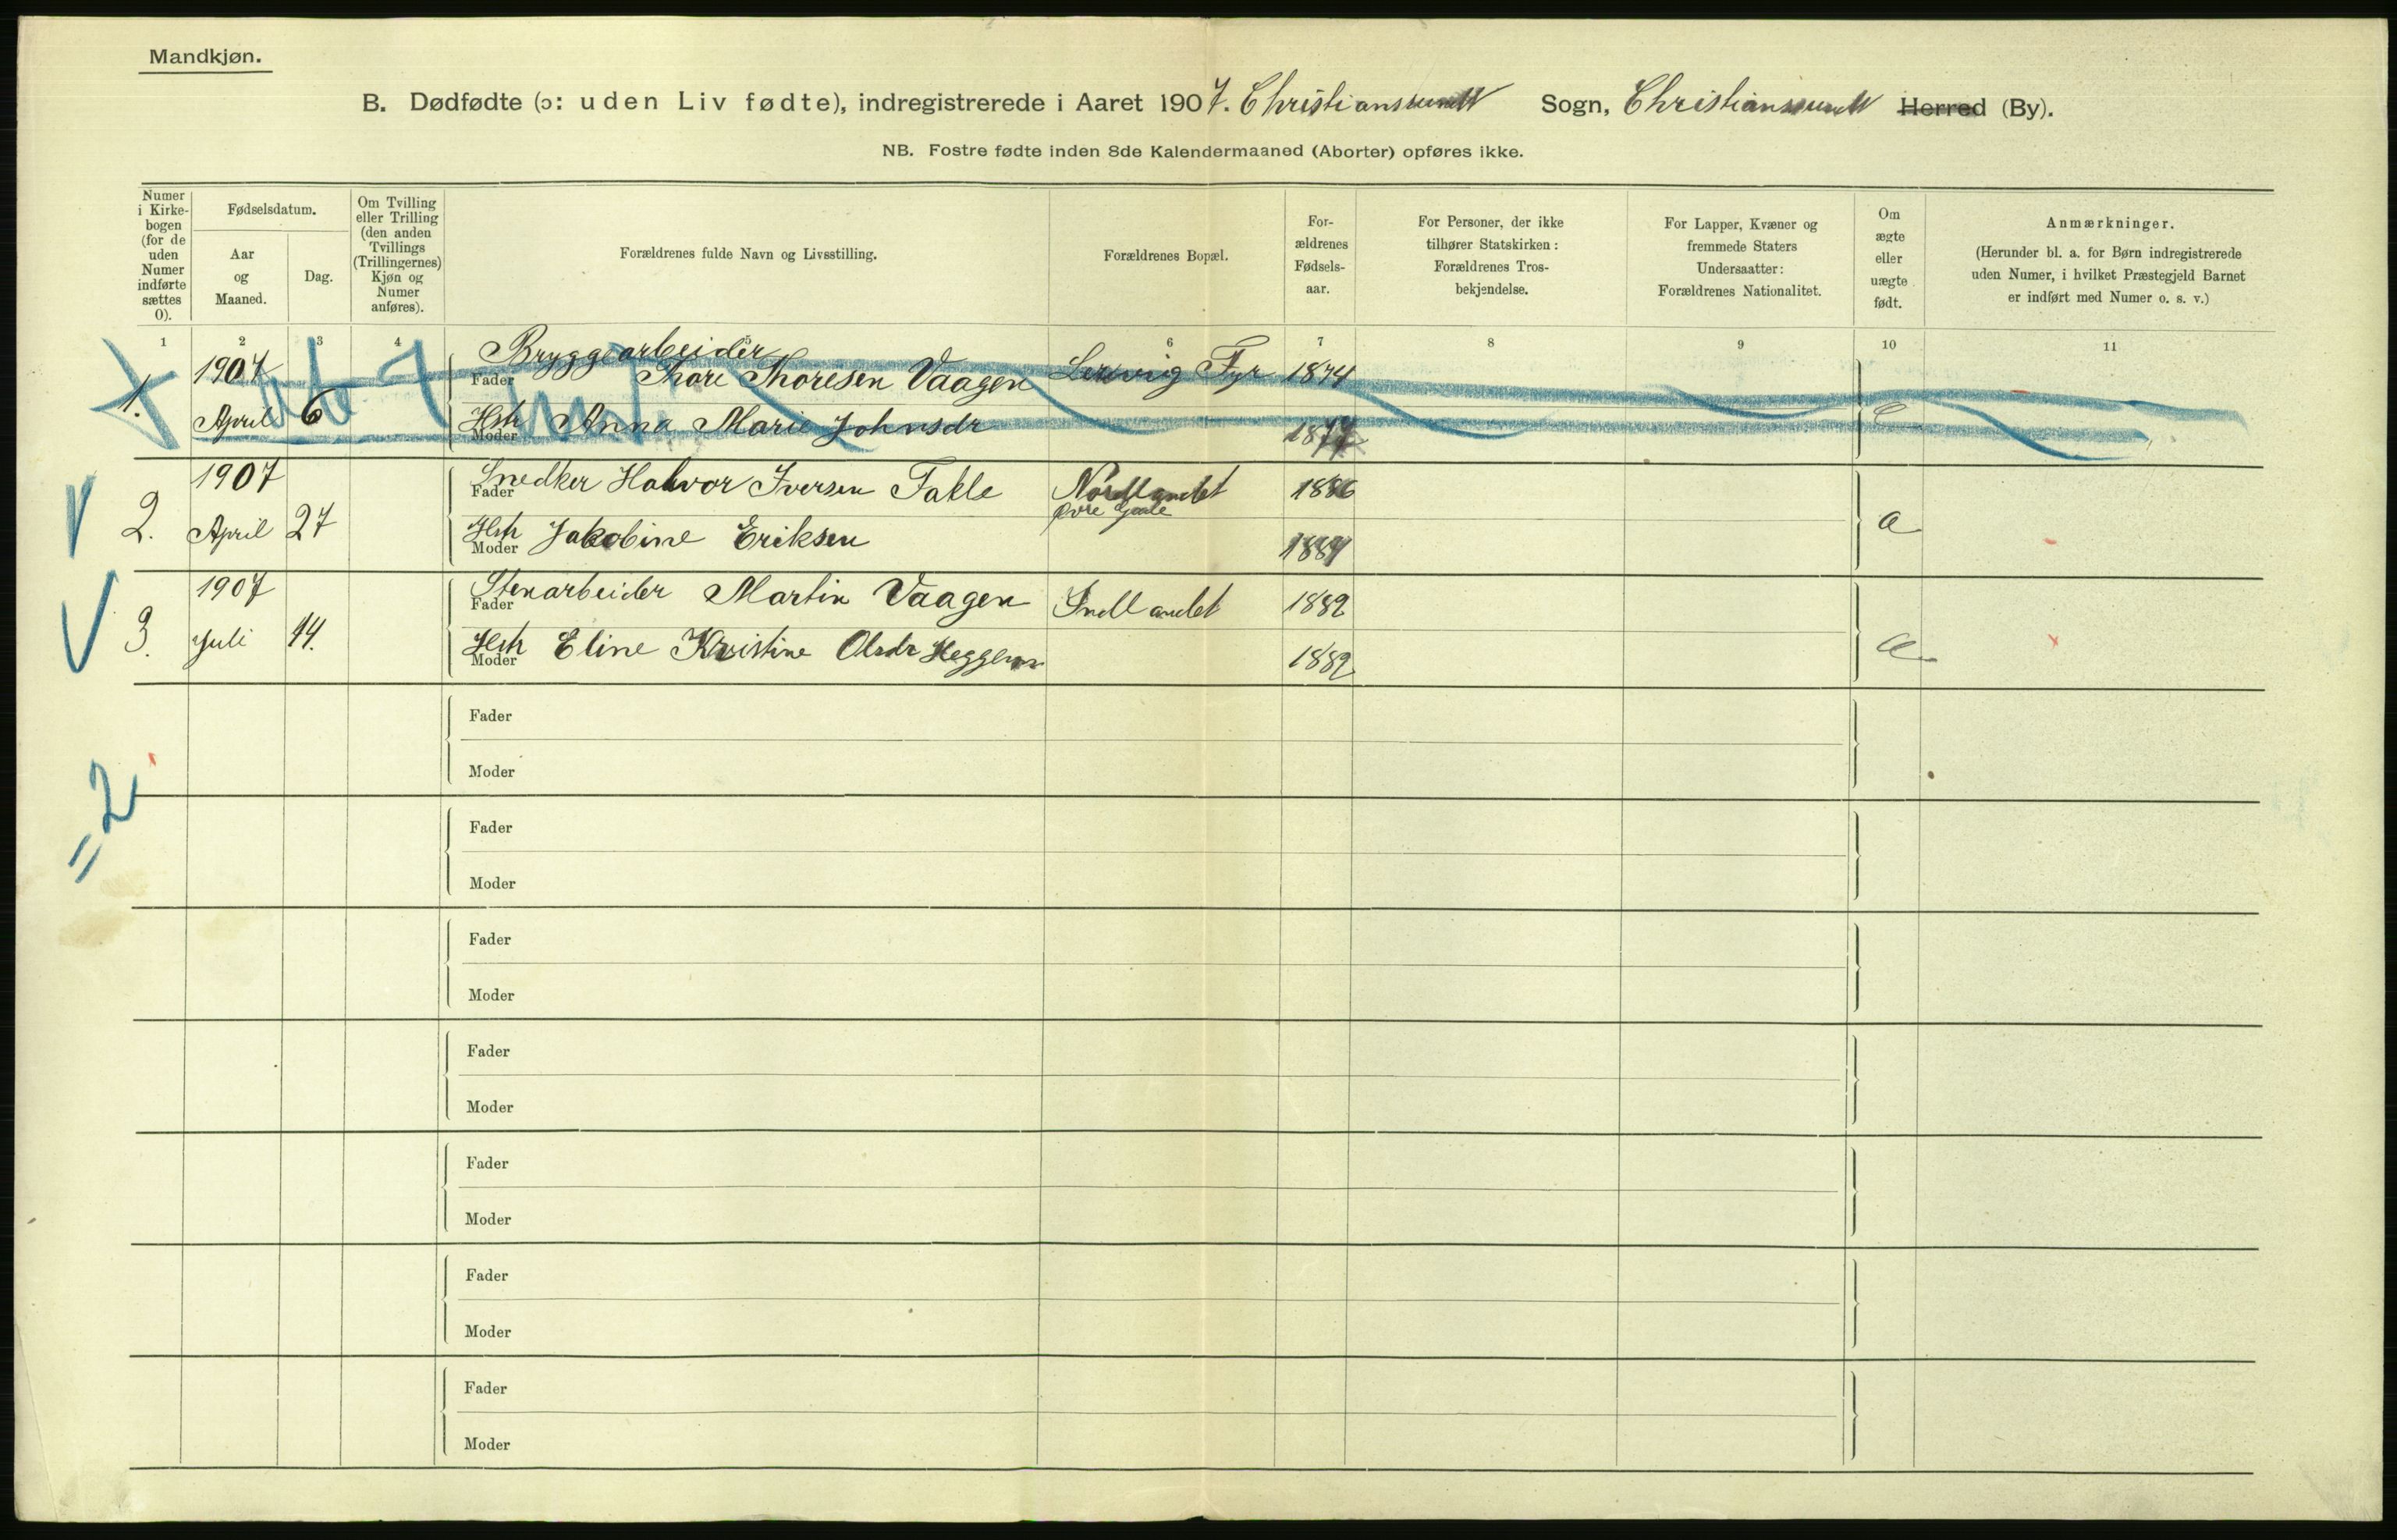 Mandkjøn.
B. Dødfødte (ɔ: uden Liv fødte), indregistrerede i Aaret 1907. Christianssundt Sogn, Christianssundt Herred (By).
NB. Fostre fødte inden 8de Kalendermaaned (Aborter) opføres ikke.
Numer i Kirke-bogen (for de uden Numer indførte sættes 0).
Fødselsdatum.
Aar og Maaned.
Dag.
Om Tvilling eller Trilling (den anden Tvillings (Trillingernes) Kjøn og Numer anføres).
Forældrenes fulde Navn og Livsstilling.
Forældrenes Bopæl.
For-ældrenes Fødsels-aar.
For Personer, der ikke tilhører Statskirken: Forældrenes Tros-bekjendelse.
For Lapper, Kvæner og fremmede Staters Undersaatter: Forældrenes Nationalitet.
Om ægte eller uægte født.
Anmærkninger.
(Herunder bl. a. for Børn indregistrerede uden Numer, i hvilket Præstegjeld Barnet er indført med Numer o. s. v.)
1 2 3 4 6 7 8 9 10 11
Bryggearbeider
1. 1907 Fader Thore Thoresen Vaagen Lervig Fyr 1874
April 6 Moder Hstr Anna Marie Johnsdr 1877 e
1907 Fader Snedker Halvor Iversen Fakle Nordlandet 1886
Øvre Gaale
2. April 27 Moder Hstr Jakobine Eriksen 1884 a
1907 Fader Stenarbeider Martin Vaagen Indlandet 1882
3. Juli 14. Moder Hstr Eline Kristine Olsdr Heggem 1882 a
Fader
Moder
= 2
Fader
Moder
Fader
Moder
Fader
Moder
Fader
Moder
Fader
Moder
Fader
Moder